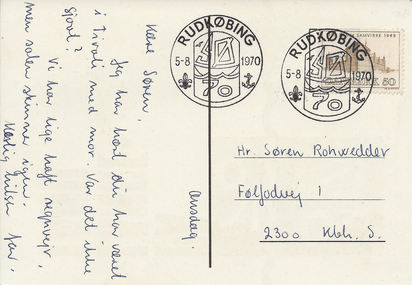 onsdag.
Kære Søren,
Jeg har hørt du har været
i Tivoli med mor. Var det ikke
sjovt?
Vi har lige haft regnvejr,
men solen skinner igen.
Kærlig hilsen Far.
RUDKØBING
5-8 1970
70
RUDKØBING
5-8 1970
70
SAMVIRKE 1969
50
Hr. Søren Rohwedder
Følfodvej 1
2300 Kbh. S.